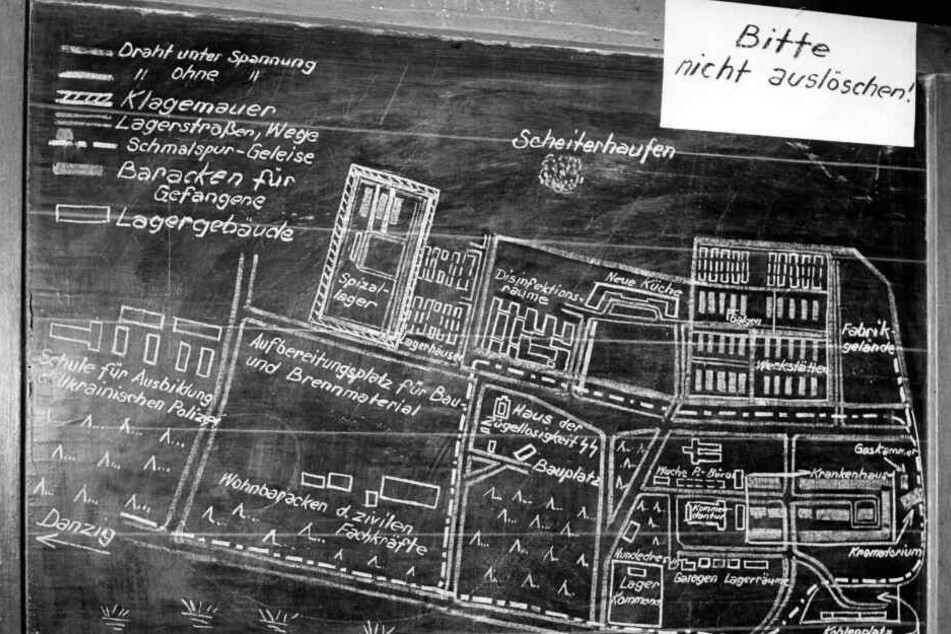 Bitte
nicht auslöschen!
Draht unter Spannung
" ohne "
Klagemauer
Lagerstraßen, Wege
Schmalspur-Geleise
Baracken für
Gefangene
Lagergebäude
Scheiterhaufen
Spizal-
lager
Lagerhäuser
Disinfektions-
räume
Neue Küche
Galgen
Werkstätten
Fabrik-
gelände
Schule für Ausbildung
Ukrainischen Polizei
Aufbereitungsplatz für Bau-
und Brennmaterial
Haus der
Zügellosigkeit SS
Bauplatz
Wohnbaracken d. zivilen
Fachkräfte
Danzig
Wache P.-Büro
Krankenhaus
Gaskammer
Kommen-
dantur
Krematorium
Garagen Lagerräume
Lager
Kohlenplatz